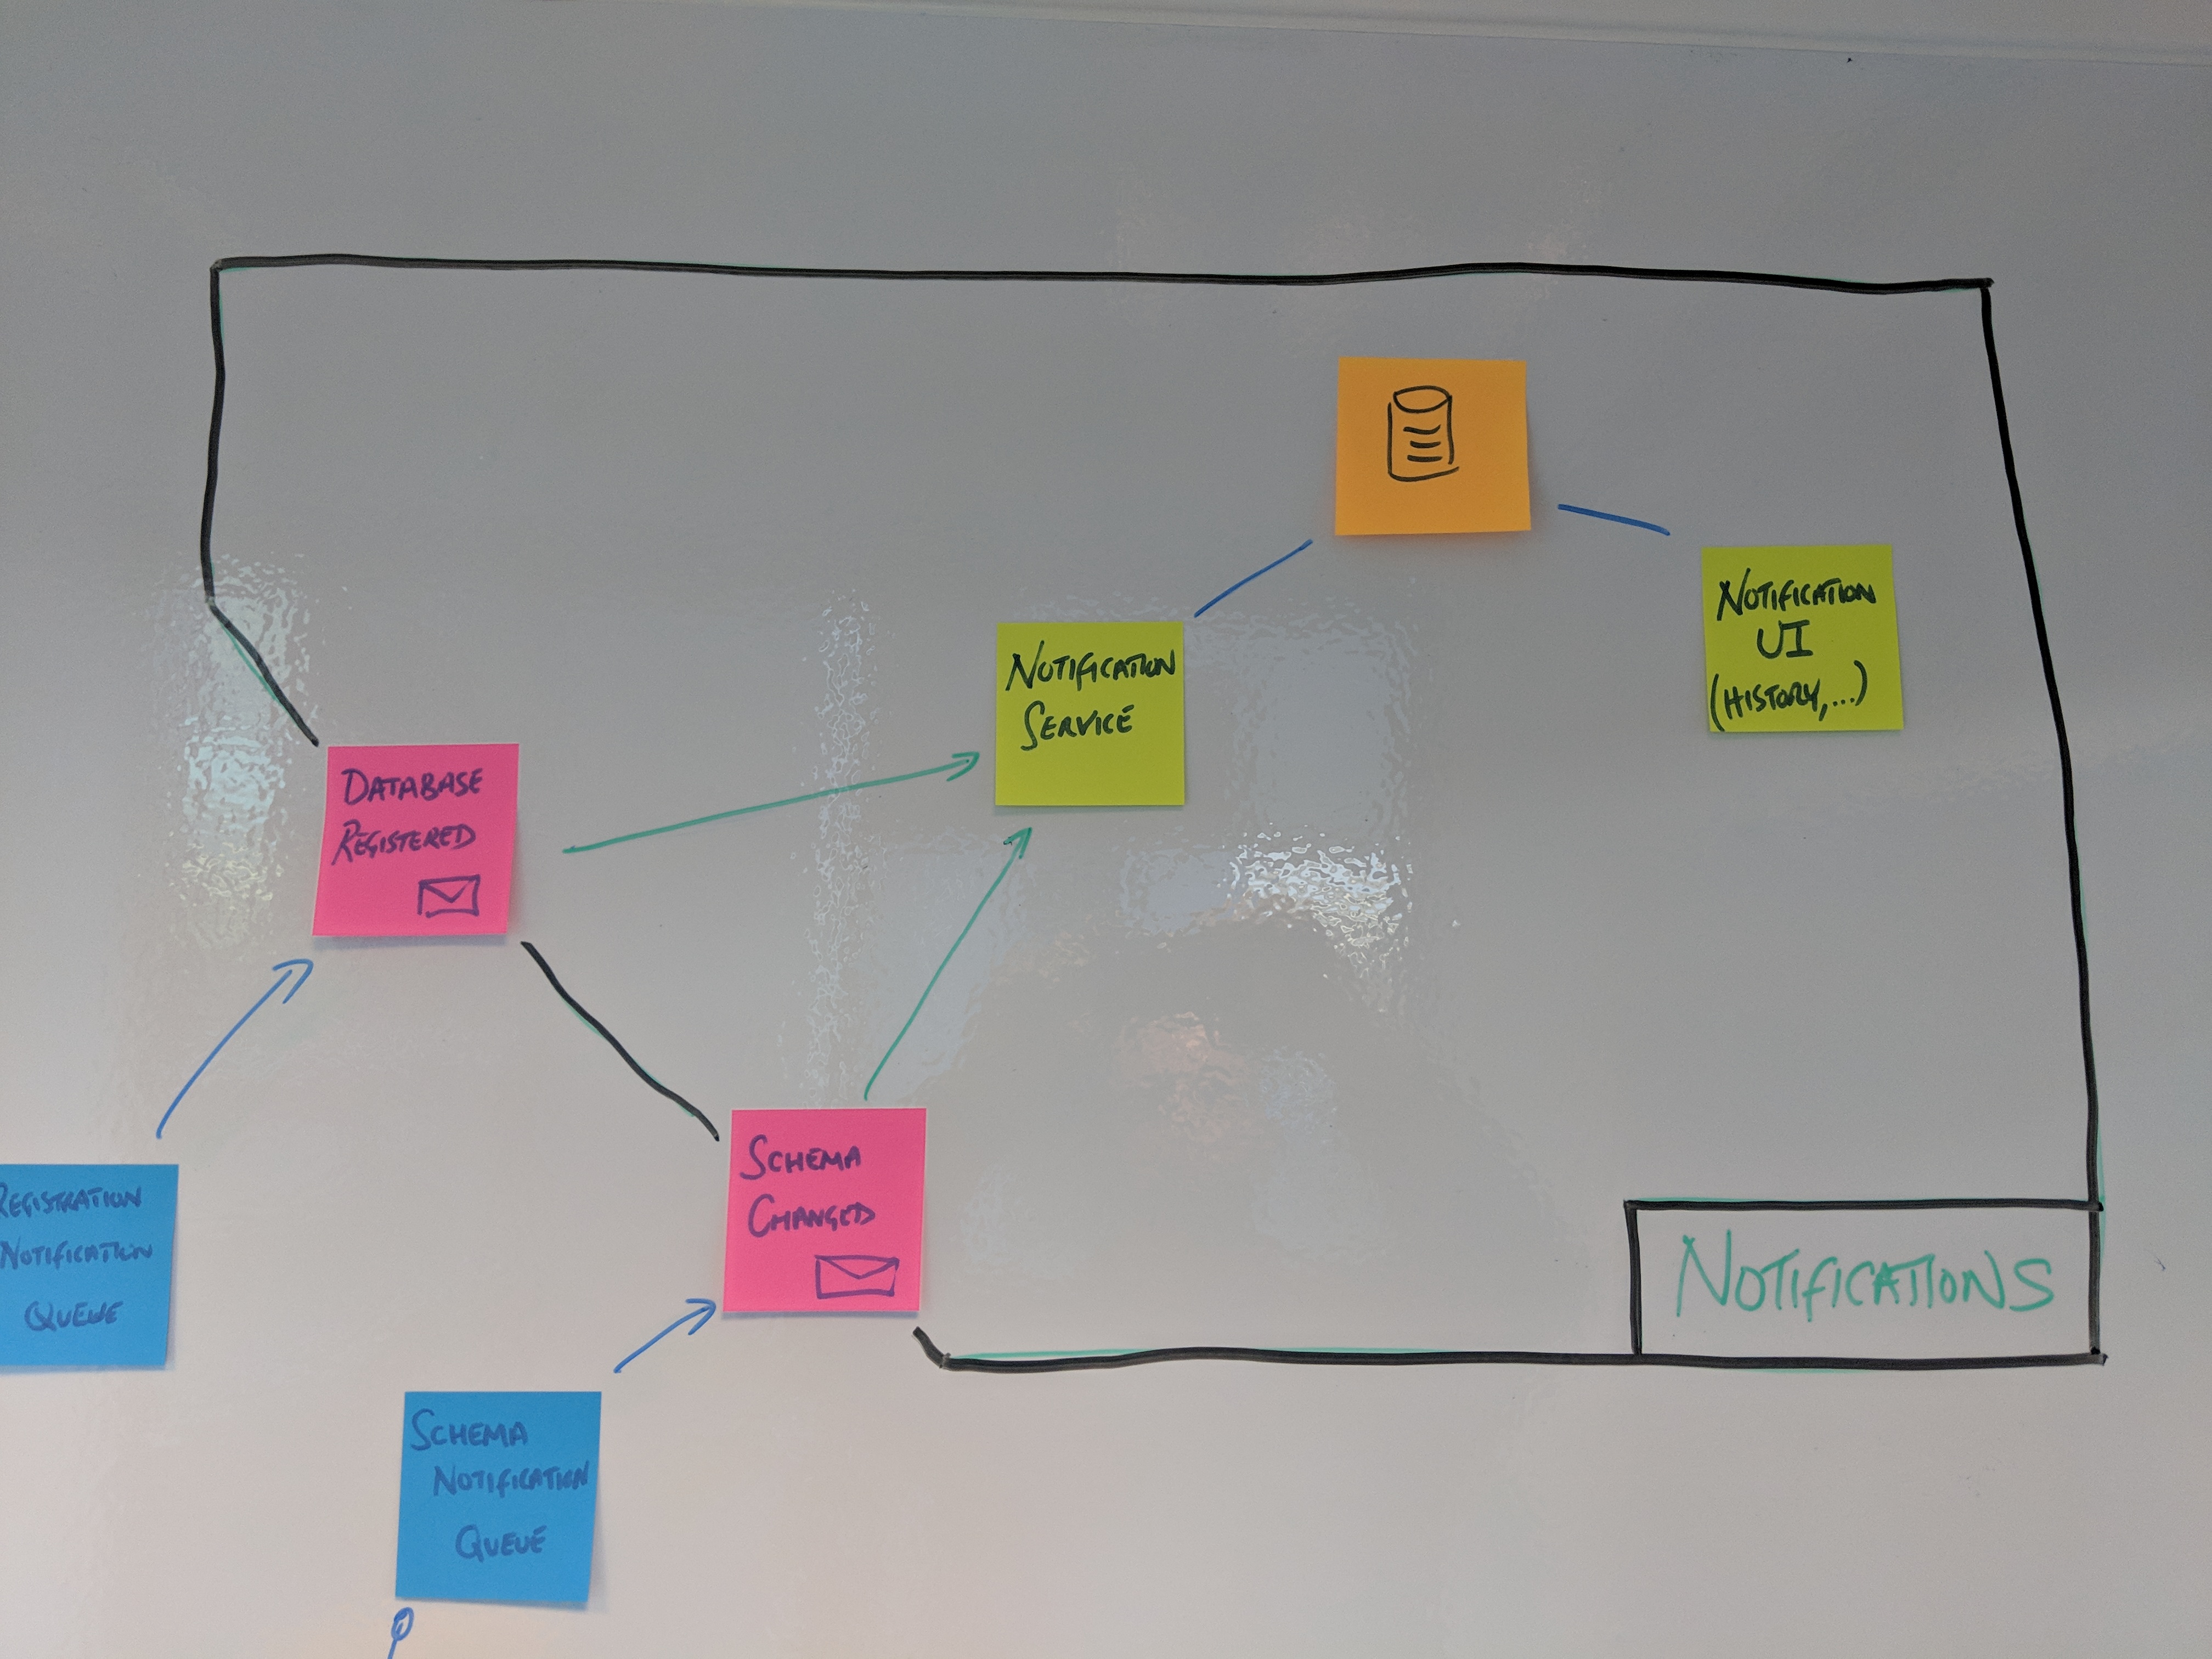 NOTIFICATION
UI
(HISTORY,...)
NOTIFICATION
SERVICE
DATABASE
REGISTERED
SCHEMA
CHANGED
REGISTRATION
NOTIFICATION
QUEUE
NOTIFICATIONS
SCHEMA
NOTIFICATION
QUEUE